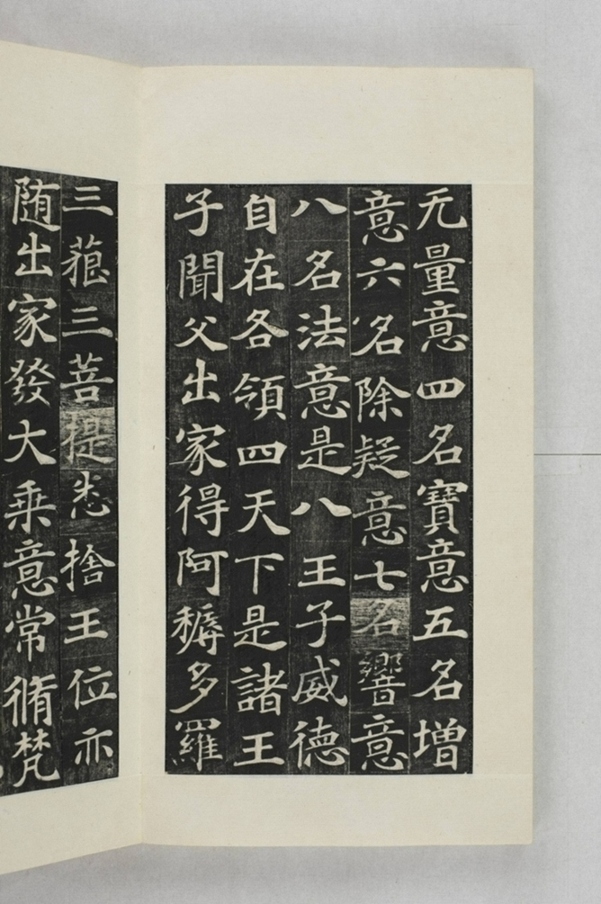 无量意四名寶意五名增
意六名除疑意七名響意
八名法意是八王子威德
自在各領四天下是諸王
子聞父出家得阿耨多羅
三藐三菩提悉捨王位亦
随出家發大乗意常脩梵